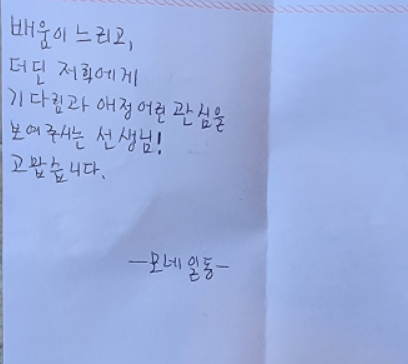 배움이 느리고,
더딘 저희에게
기다림과 애정어린 관심을
보여주시는 선생님!
고맙습니다.
—모네 일동—